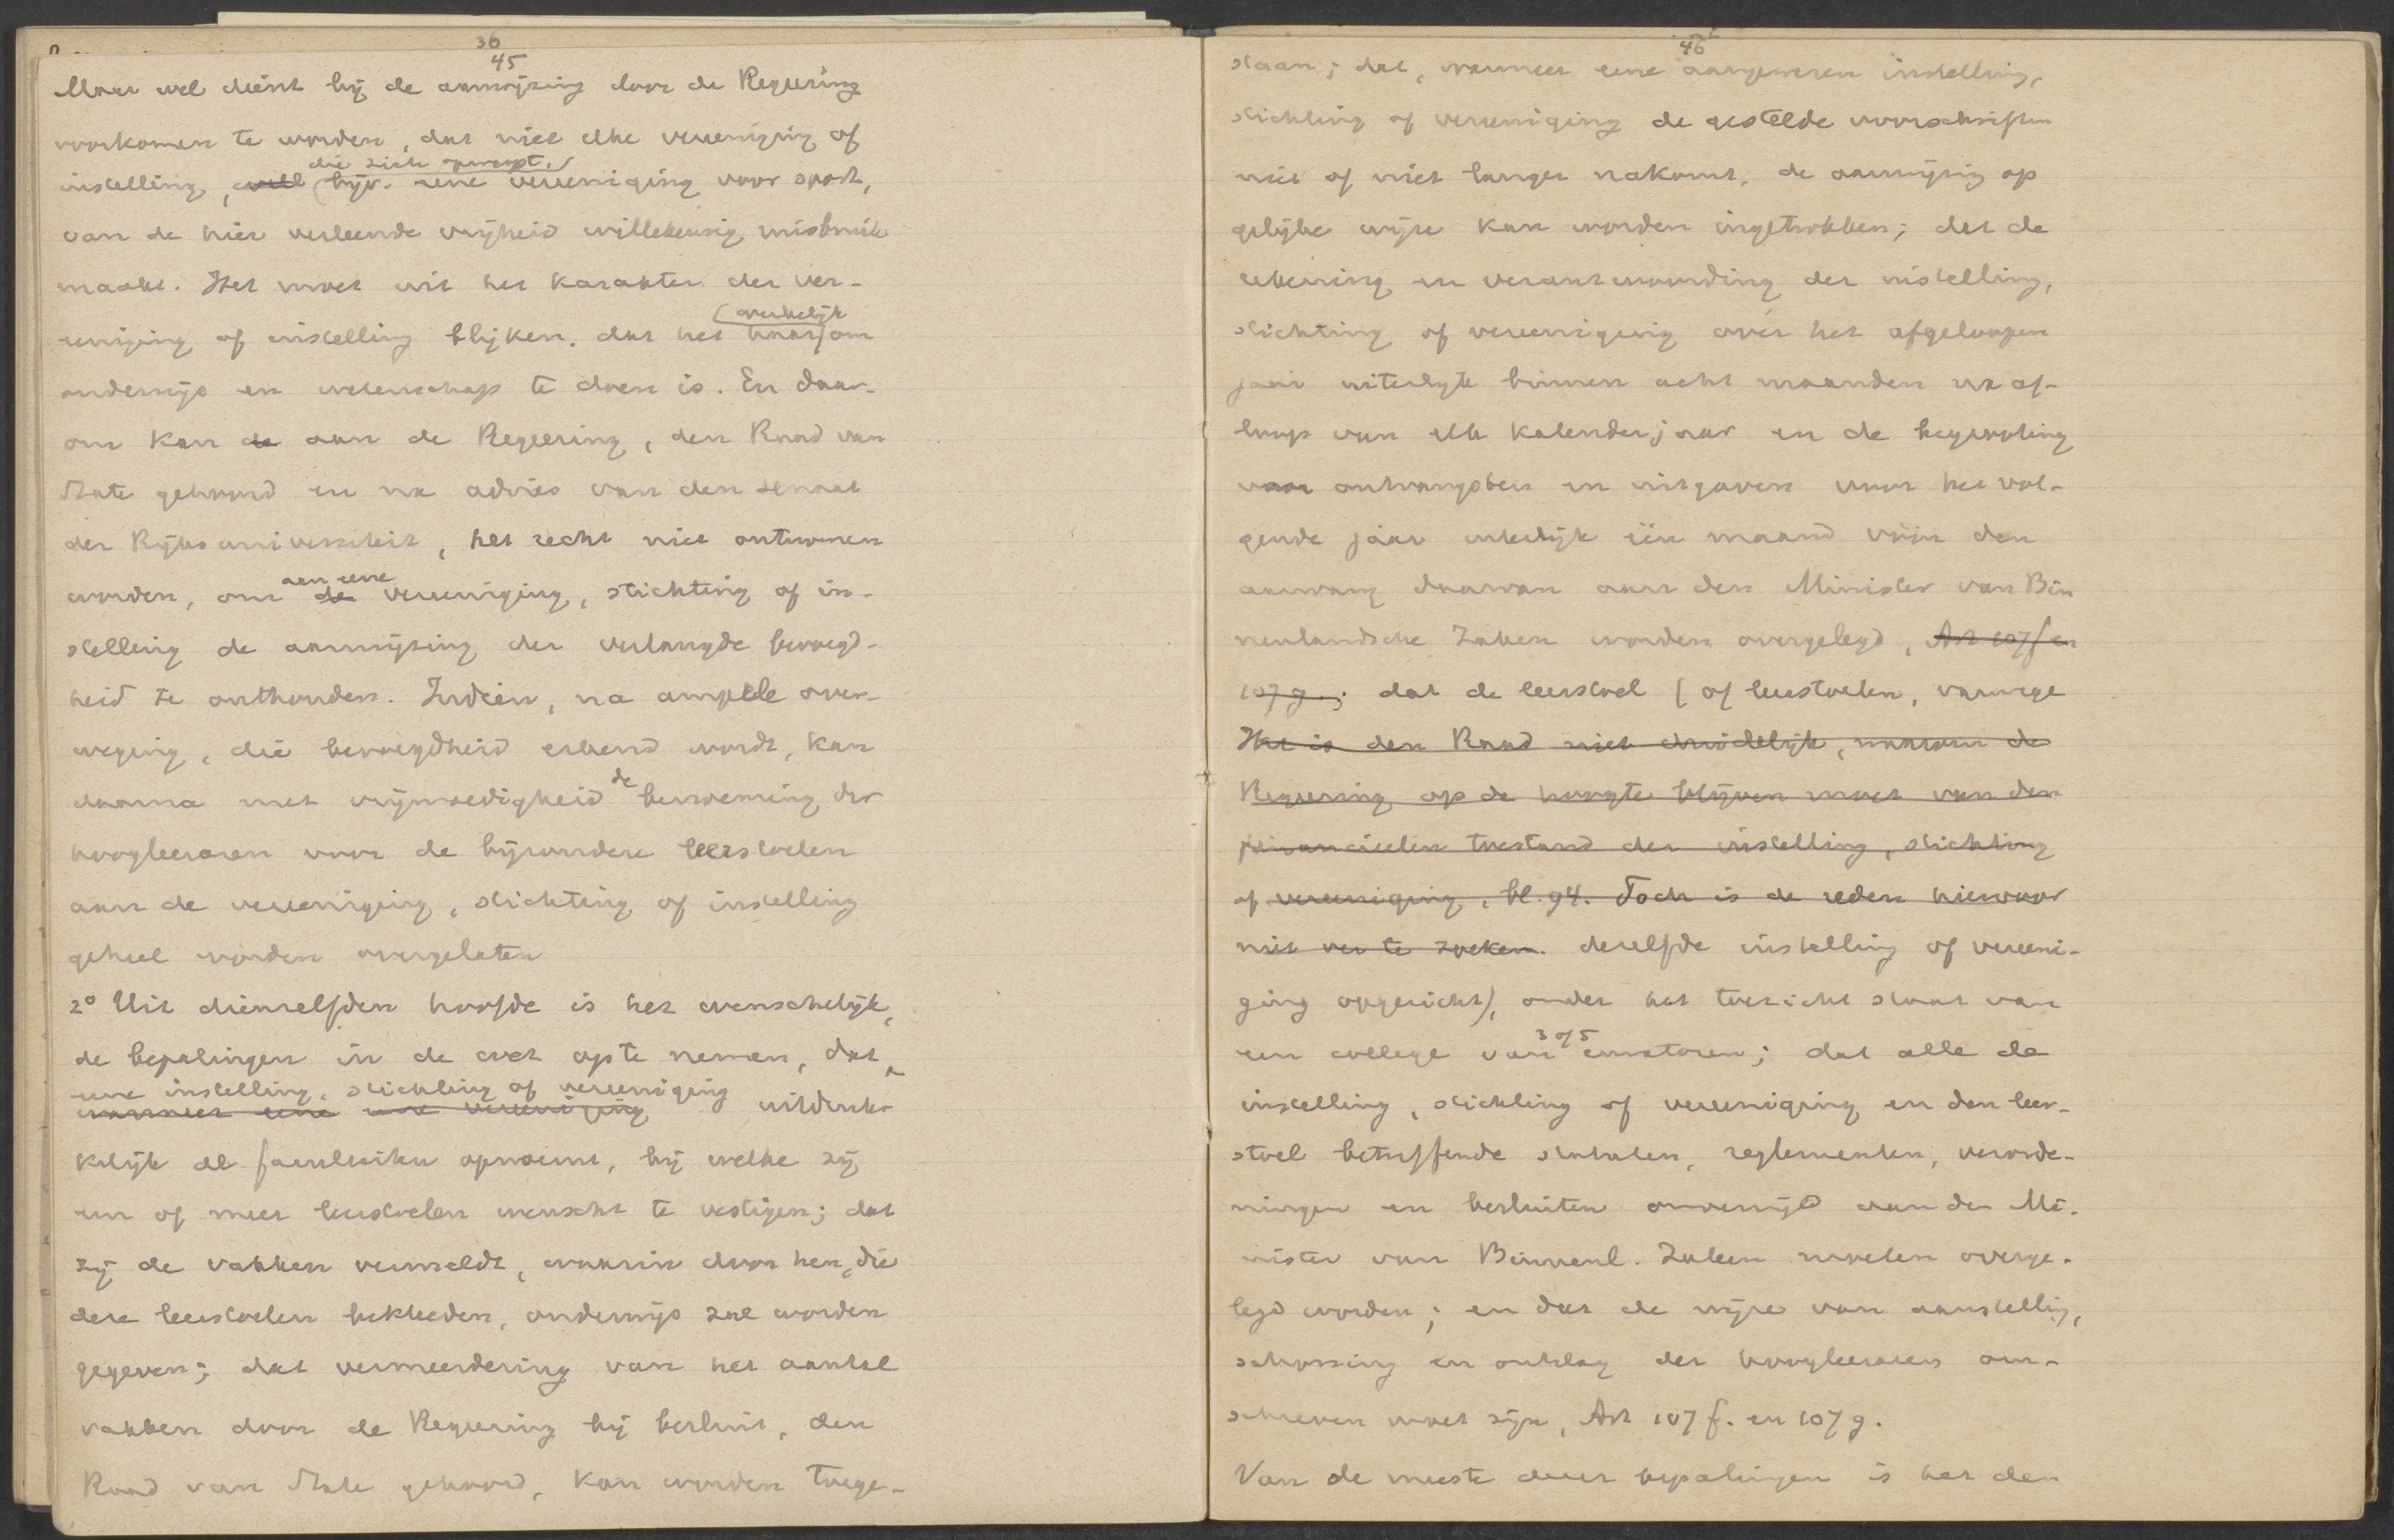 30
45
Maar wel dient bij de aanwijzing door de Regeering
voorkomen te worden, dat niet elke vereeniging of
die zich opwerpt,
instelling, bijv. eene vereeniging voor sport,
van de hier verleende vrijheid willekeurig misbruik
maakt. Het moet uit het karakter der ver-
werkelijk
eeniging of instelling blijken, dat het haar om
onderwijs en wetenschap te doen is. En daar-
om kan de aan de Regeering, den Raad van
State gehoord en na advies van den senaat
der Rijksuniversiteit, het recht niet ontnomen
aan eene
worden, om de vereeniging, stichting of in-
stelling de aanwijzing der verlangde bevoegd-
heid te onthouden. Indien, na ampele over-
weging, die bevoegdheid erkend wordt, kan
de
daarna met vrijmoedigheid benoeming der
hoogleeraren voor de bijzondere leerstoelen
aan de vereeniging, stichting of instelling
geheel worden overgelaten
2° Uit dienzelfden hoofde is het wenschelijk,
de bepalingen in de wet op te nemen, dat,
eene instelling, stichting of vereeniging
wanneer eene eene vereeniging uitdruk-
kelijk de faculteiten opnoemt, bij welke zij
een of meer leerstoelen wenscht te vestigen; dat
zij de vakken vermeldt, waarin door hen, die
deze leerstoelen bekleeden, onderwijs zal worden
gegeven; dat vermeerdering van het aantal
vakken door de Regeering bij besluit, den
Raad van State gehoord, kan worden toege-
46
staan; dat, wanneer eene aangewezen instelling,
stichting of vereeniging de gestelde voorschriften
niet of niet langer nakomt, de aanwijzing op
gelijke wijze kan worden ingetrokken; dat de
rekening en verantwoording der instelling,
stichting of vereeniging over het afgeloopen
jaar uiterlijk binnen acht maanden na af-
loop van elk kalenderjaar en de begrooting
van ontvangsten en uitgaven voor het vol-
gende jaar uiterlijk één maand vóór den
aanvang daarvan aan den Minister van Bin
nenlandsche Zaken worden overgelegd, Art 107f en
107g.; dat de leerstoel (of leerstoelen, vanwege
Het is den Raad niet duidelijk, waarom de
Regeering op de hoogte blijven moet van den
financieelen toestand der instelling, stichting
of vereeniging, bl. 94. Toch is de reden hiervoor
niet ver te zoeken. dezelfde instelling of vereeni-
ging opgericht), onder het toezicht staat van
3 of 5
een college van curatoren; dat alle de
instelling, stichting of vereeniging en den leer-
stoel betreffende statuten, reglementen, verorde-
ningen en besluiten onverwijld aan den Mi-
nister van Binnenl. Zaken moeten overge-
legd worden; en dat de wijze van aanstelling,
schorsing en ontslag der hoogleeraren om-
schreven moet zijn, Art 107f. en 107g.
Van de meeste dezer bepalingen is het den